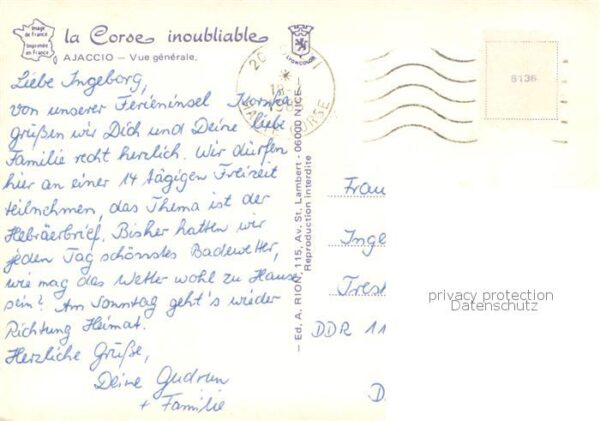 Image
de France
Imprimée
en France
la Corse inoubliable
AJACCIO – Vue générale.
LYONCOLOR
Liebe Ingeborg,
von unserer Ferieninsel Korsika
grüßen wir Dich und Deine liebe
Familie recht herzlich. Wir dürfen
hier an einer 14 tägigen Freizeit
teilnehmen, das Thema ist der
Hebräerbrief. Bisher hatten wir
jeden Tag schönstes Badewetter,
wie mag das Wetter wohl zu Hause
sein? Am Sonntag geht's wieder
Richtung Heimat.
Herzliche Grüße,
Deine Gudrun
+ Familie
— Ed. A. RION, 115, Av. St. Lambert - 06000 NICE —
Reproduction interdite
CORSE
8136
Frau
Inge
Trest
DDR 11
D
privacy protection
Datenschutz